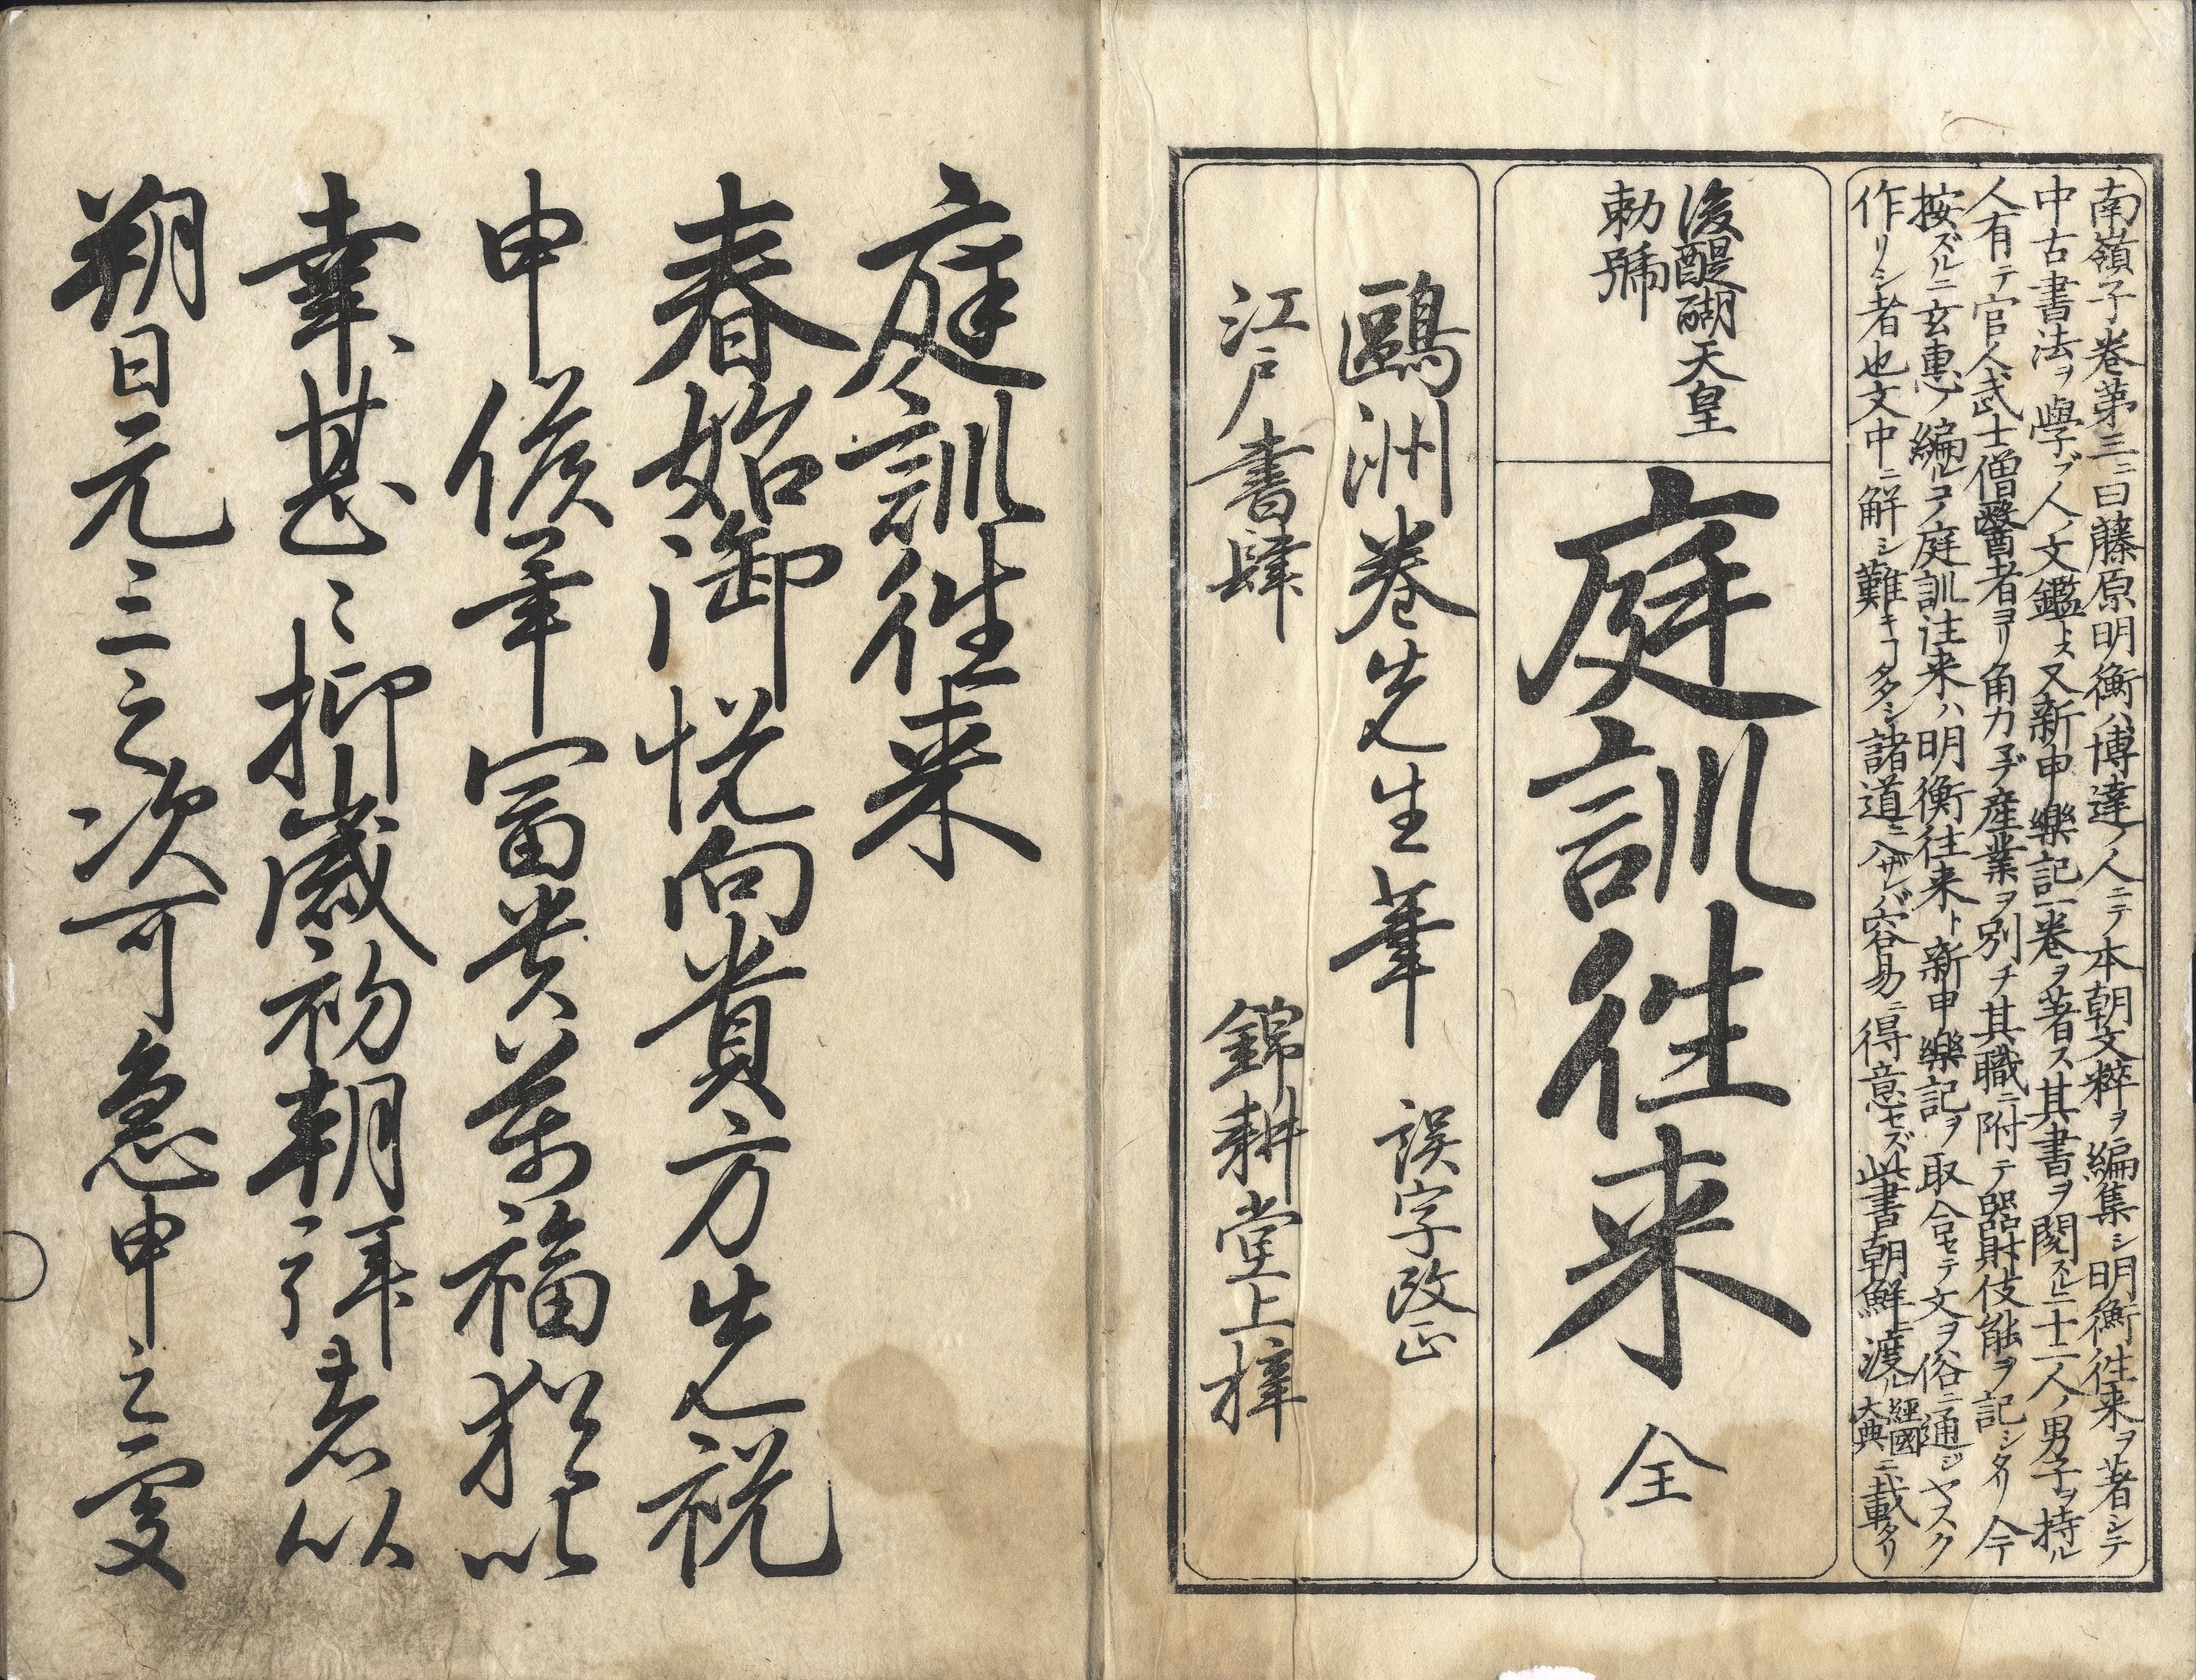 南嶺子卷苐三ニ曰藤原明衡ハ博達ノ人ニテ本朝文粹ヲ編集シ明衡徃来ヲ著シテ
中古書法ヲ學ブ人ノ文鑑トス又新申樂記一卷ヲ著ス其書ヲ閲スルニ十二人ノ男子ヲ持ル
人有テ官人武士僧醫者ヨリ角力マデ産業ヲ別チ其職ニ附テ器財伎能ヲ記シタリ今
按ズルニ玄惠ノ編ルコノ庭訓往来ハ明衡往来ト新申樂記ヲ取合セテ文ヲ俗ニ通ジヤスク
作リシ者也文中ニ解シ難キコ多シ諸道ニ入ザレバ容易ニ得意セズ此書朝鮮ニ渡ル經國大典ニ載タリ
後醍醐天皇
勅號
庭訓徃来 全
鷗洲卷先生筆 誤字改正
江戸書肆 錦耕堂上梓
庭訓徃来
春始御悦向貴方先祝
申候畢冨貴萬福猶以
幸甚〻抑歳初朝拝者以
朔日元三之次可急申之處